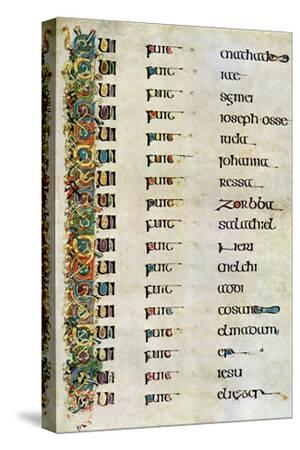 Qui fuit mathathi
Qui fuit iae
Qui fuit semei
Qui fuit ioseph osse
Qui fuit iuda
Qui fuit iohanna
Qui fuit ressa
Qui fuit zorbba
Qui fuit salathiel
Qui fuit neri
Qui fuit melchi
Qui fuit addi
Qui fuit cosam
Qui fuit elmadam
Qui fuit er
Qui fuit iesu
Qui fuit eliezer